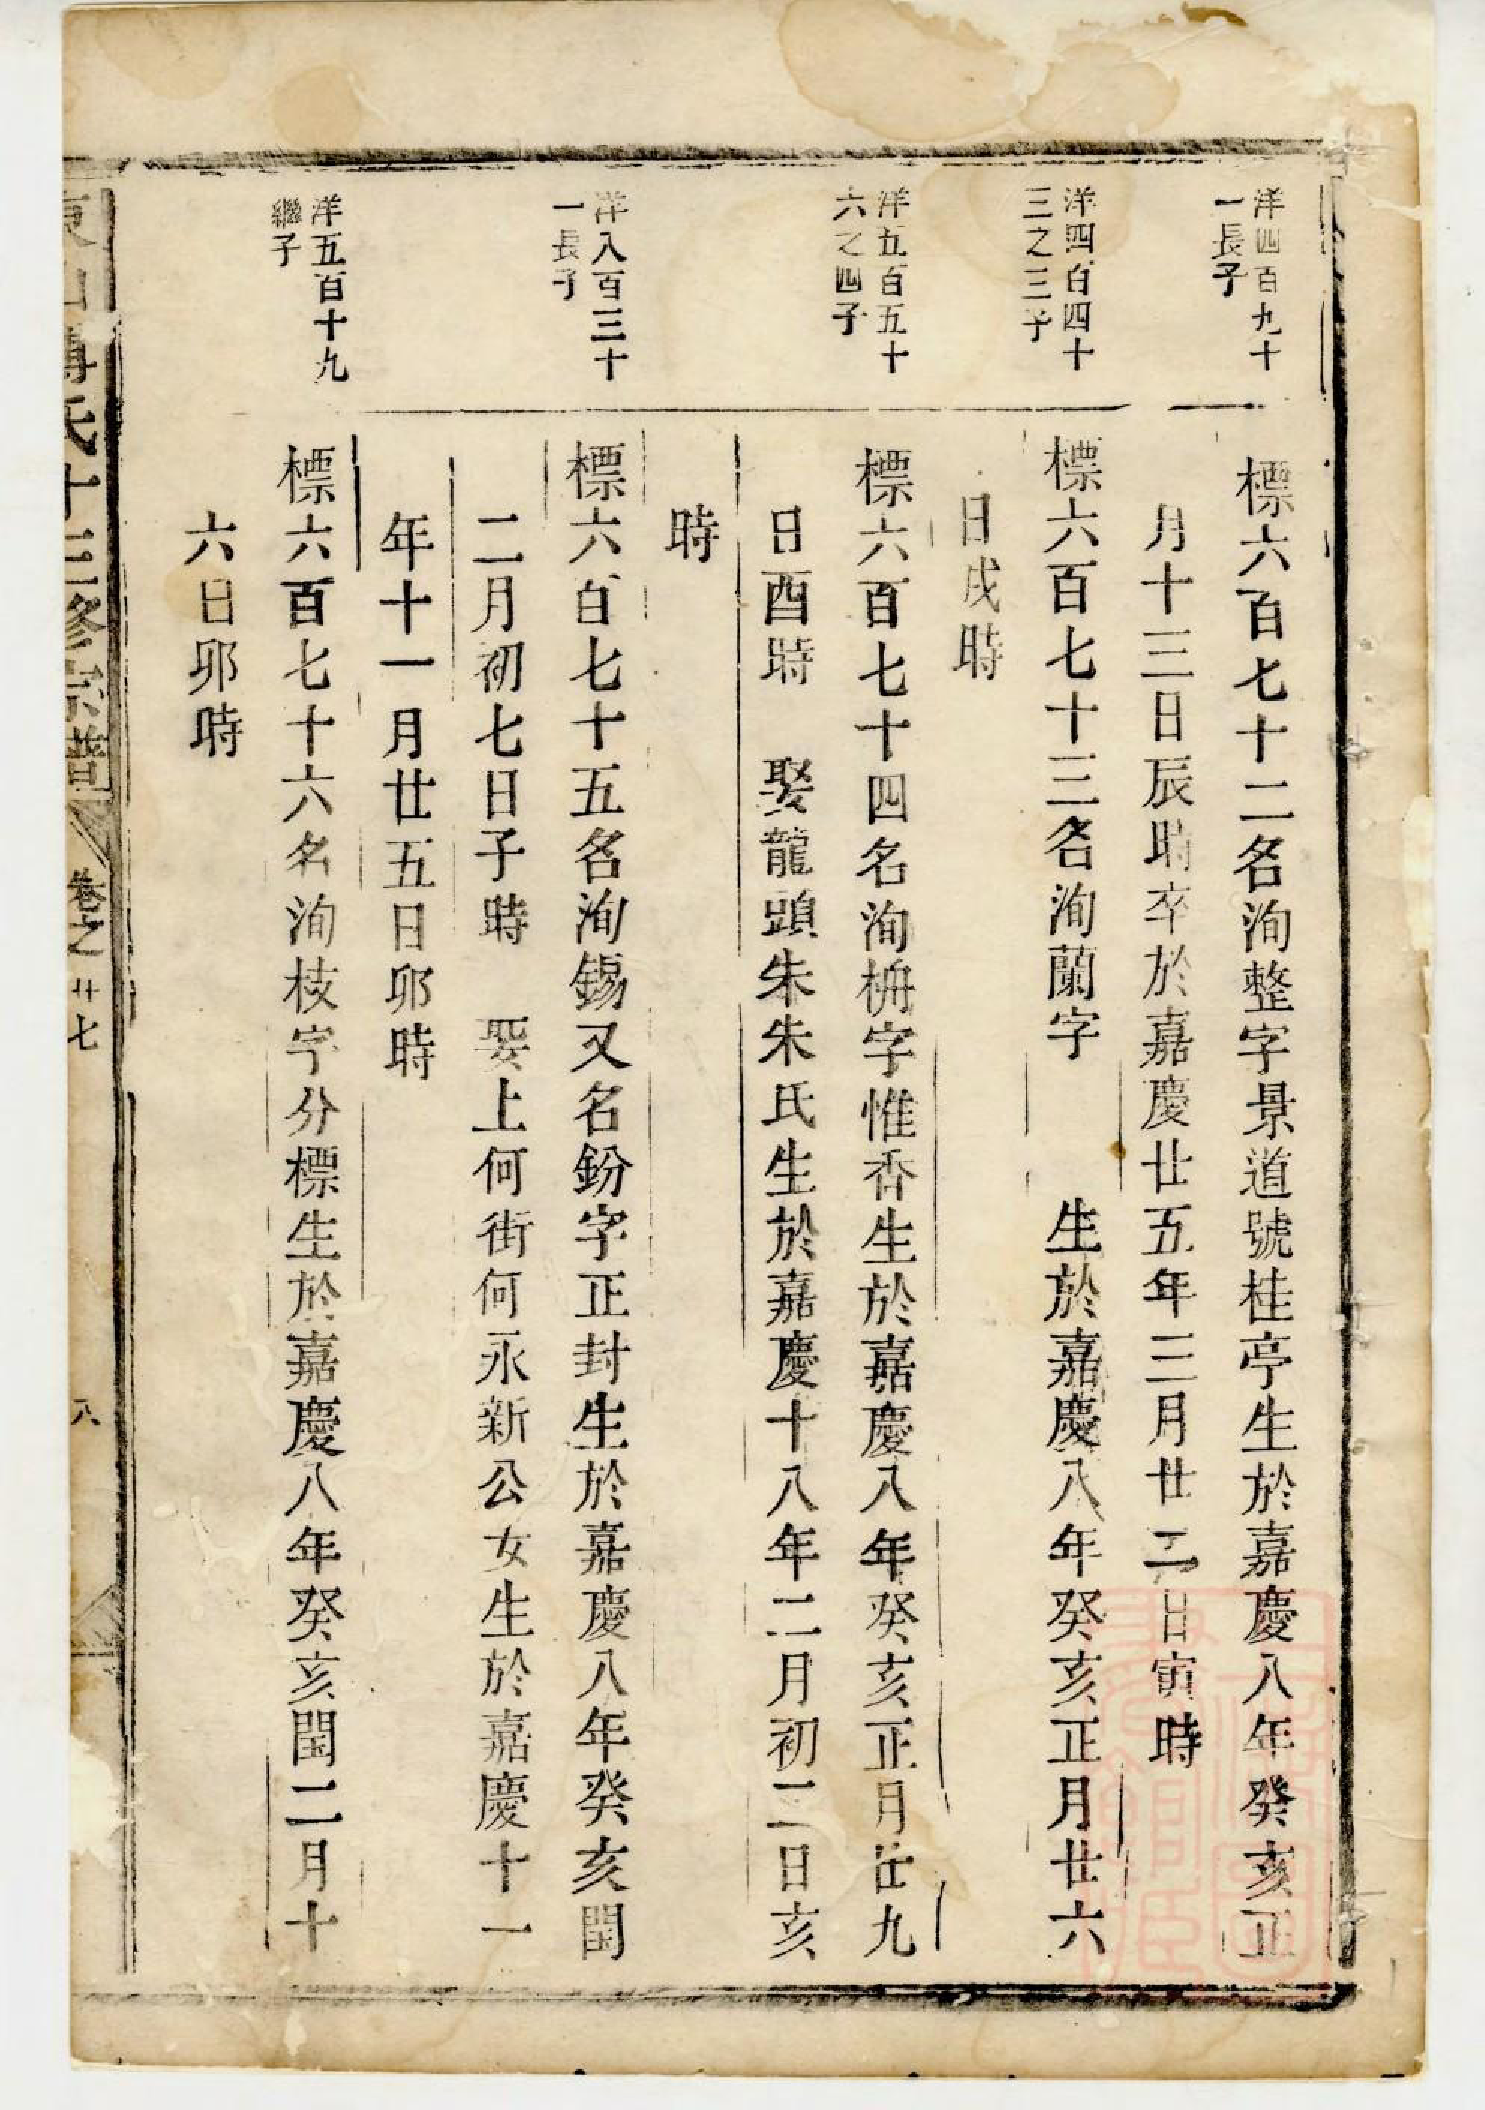 洋四百九十
一長子
標六百七十二名洵整字景道號桂亭生於嘉慶八年癸亥正
月十三日辰時卒於嘉慶廿五年三月廿二日寅時
洋四百四十
三之三子
標六百七十三名洵蘭字　生於嘉慶八年癸亥正月廿六
日戌時
洋五百五十
六之四子
標六百七十四名洵枬字惟香生於嘉慶八年癸亥正月廿九
日酉時　娶龍頭朱朱氏生於嘉慶十八年二月初二日亥
時
洋八百三十
一長子
標六百七十五名洵錫又名鈖字正封生於嘉慶八年癸亥閏
二月初七日子時　娶上何街何永新公女生於嘉慶十一
年十一月廿五日卯時
洋五百十九
繼子
標六百七十六名洵枝字分標生於嘉慶八年癸亥閏二月十
六日卯時
東山傅氏十三修宗譜　卷之廿七　八